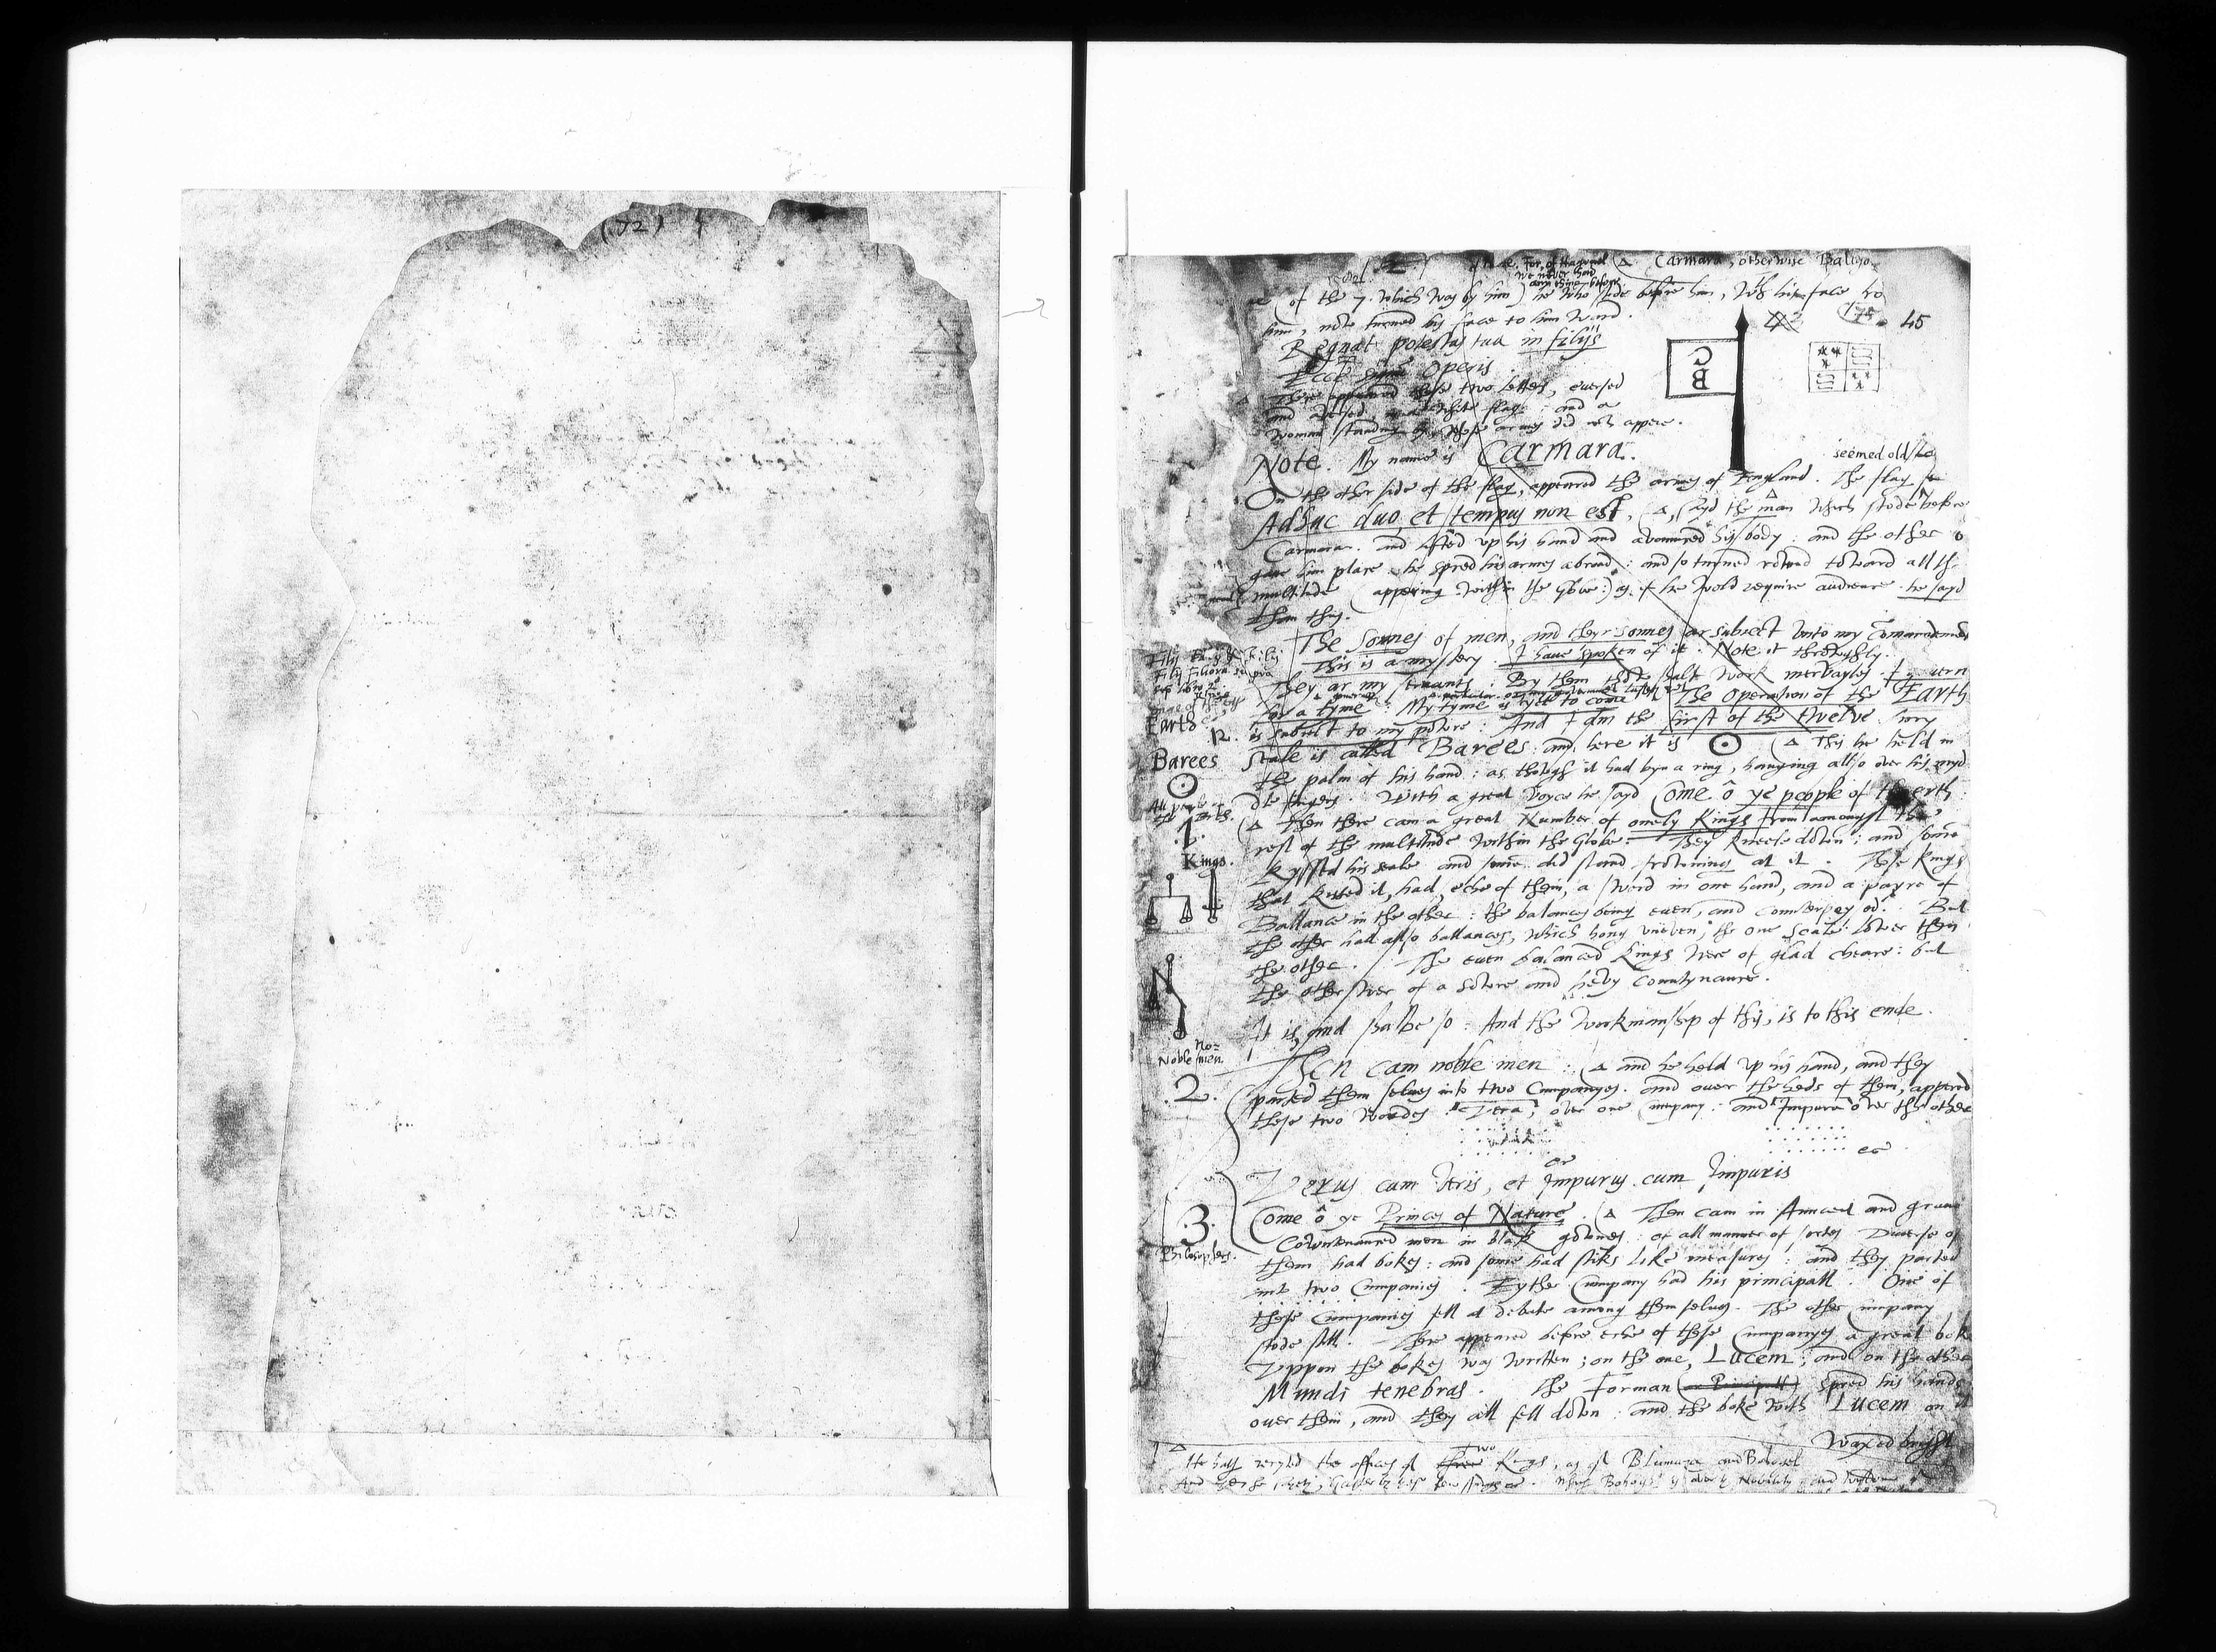 (72)
Carmara, otherwise Baligo
we never had
any thing before
of the 7. which was by him) he who stode before him, with his face
him, now turned his face to him ward.
42
45
Regnat potestas tua in filijs
Ecce Operis.
There appeared these two letters, eversed
and aversed, in a white flag: and a
woman standing by, whose armes did not appere.
C
B
Note. My name is Carmara.
seemed old
On the other side of the flag, appeared the armes of England. The flag
Adhuc duo, et tempus non est. (Δ, sayd the man which stode before
Carmara. and lifted up his hand and avaunced his body: and the other
gave him place he spred his armes abroad: and so turned rownd toward all th
multitude (appering within the Globe:) as if he wold require audience he sayd
then this.
The Sonnes of men, and theyr sonnes ar subiect unto my commandement
This is a mystery. I have spoken of it. Note it throwghly.
They ar my servants. By them thow shalt work mervayles. I govern
for a tyme: My tyme is yet to come. The Operation of the Earth
Earth
12. is subiect to my powre: And I am the first of the twelve. my
seale is called Barees: and here it is ☉ (Δ This he held in
Barees
☉
the palm of his hand: as thowgh it had byn a ring, hanging allso over his myd
dle fingers. With a great voyce he sayd Come ô ye people of the erth:
All people of
the Earth.
(Δ Then there cam a great Number of onely Kings from amongst the
.1.
rest of the multitude within the Globe: They kneele down: and some
Kings.
kyssed his seale and some did stand frowning at it. These Kings
that kissed it, had, eche of them, a sword in one hand, and a payre of
Ballance in the other: the balances being even, and counterpeysed. But
the other had allso ballances, which hong uneven; the one scale lower then
the other. The even balanced Kings were of glad cheare: but
the other were of a sowre and hevy countynaunce.
It is, and shalbe so: And the workmanship of this, is to this ende.
Noble men
.2.
Then cam noble men: (Δ and he held up his hand, and they
parted them selves into two Companyes. and over the heds of them, appered
these two wordes Vera, over one Company: and Impura over the other
Verus cum Veris, et Impurus cum Impuris
.3.
Philosophers.
Come ô ye Princes of Nature. (Δ Then cam in Auncient and grave
Cowntenanced men in blak gownes: of all manner of sortes Diverse of
them had bokes: and some had stiks like measures: and they parted
into two Companies. Eyther Company had his principall. One of
these Companies fell at debate among them selves. The other Company
stode still. There appeared before eche of these Companyes a great boke
Uppon the bokes was written; on the one, Lucem; and on the other
Mundi tenebras. The Forman (or Principall) spred his hands
over them, and they all fell down: and the boke with Lucem on it
Waxed bright
Δ
He hath recyted the offices of three two Kings, as of Blumaza and Bobogel